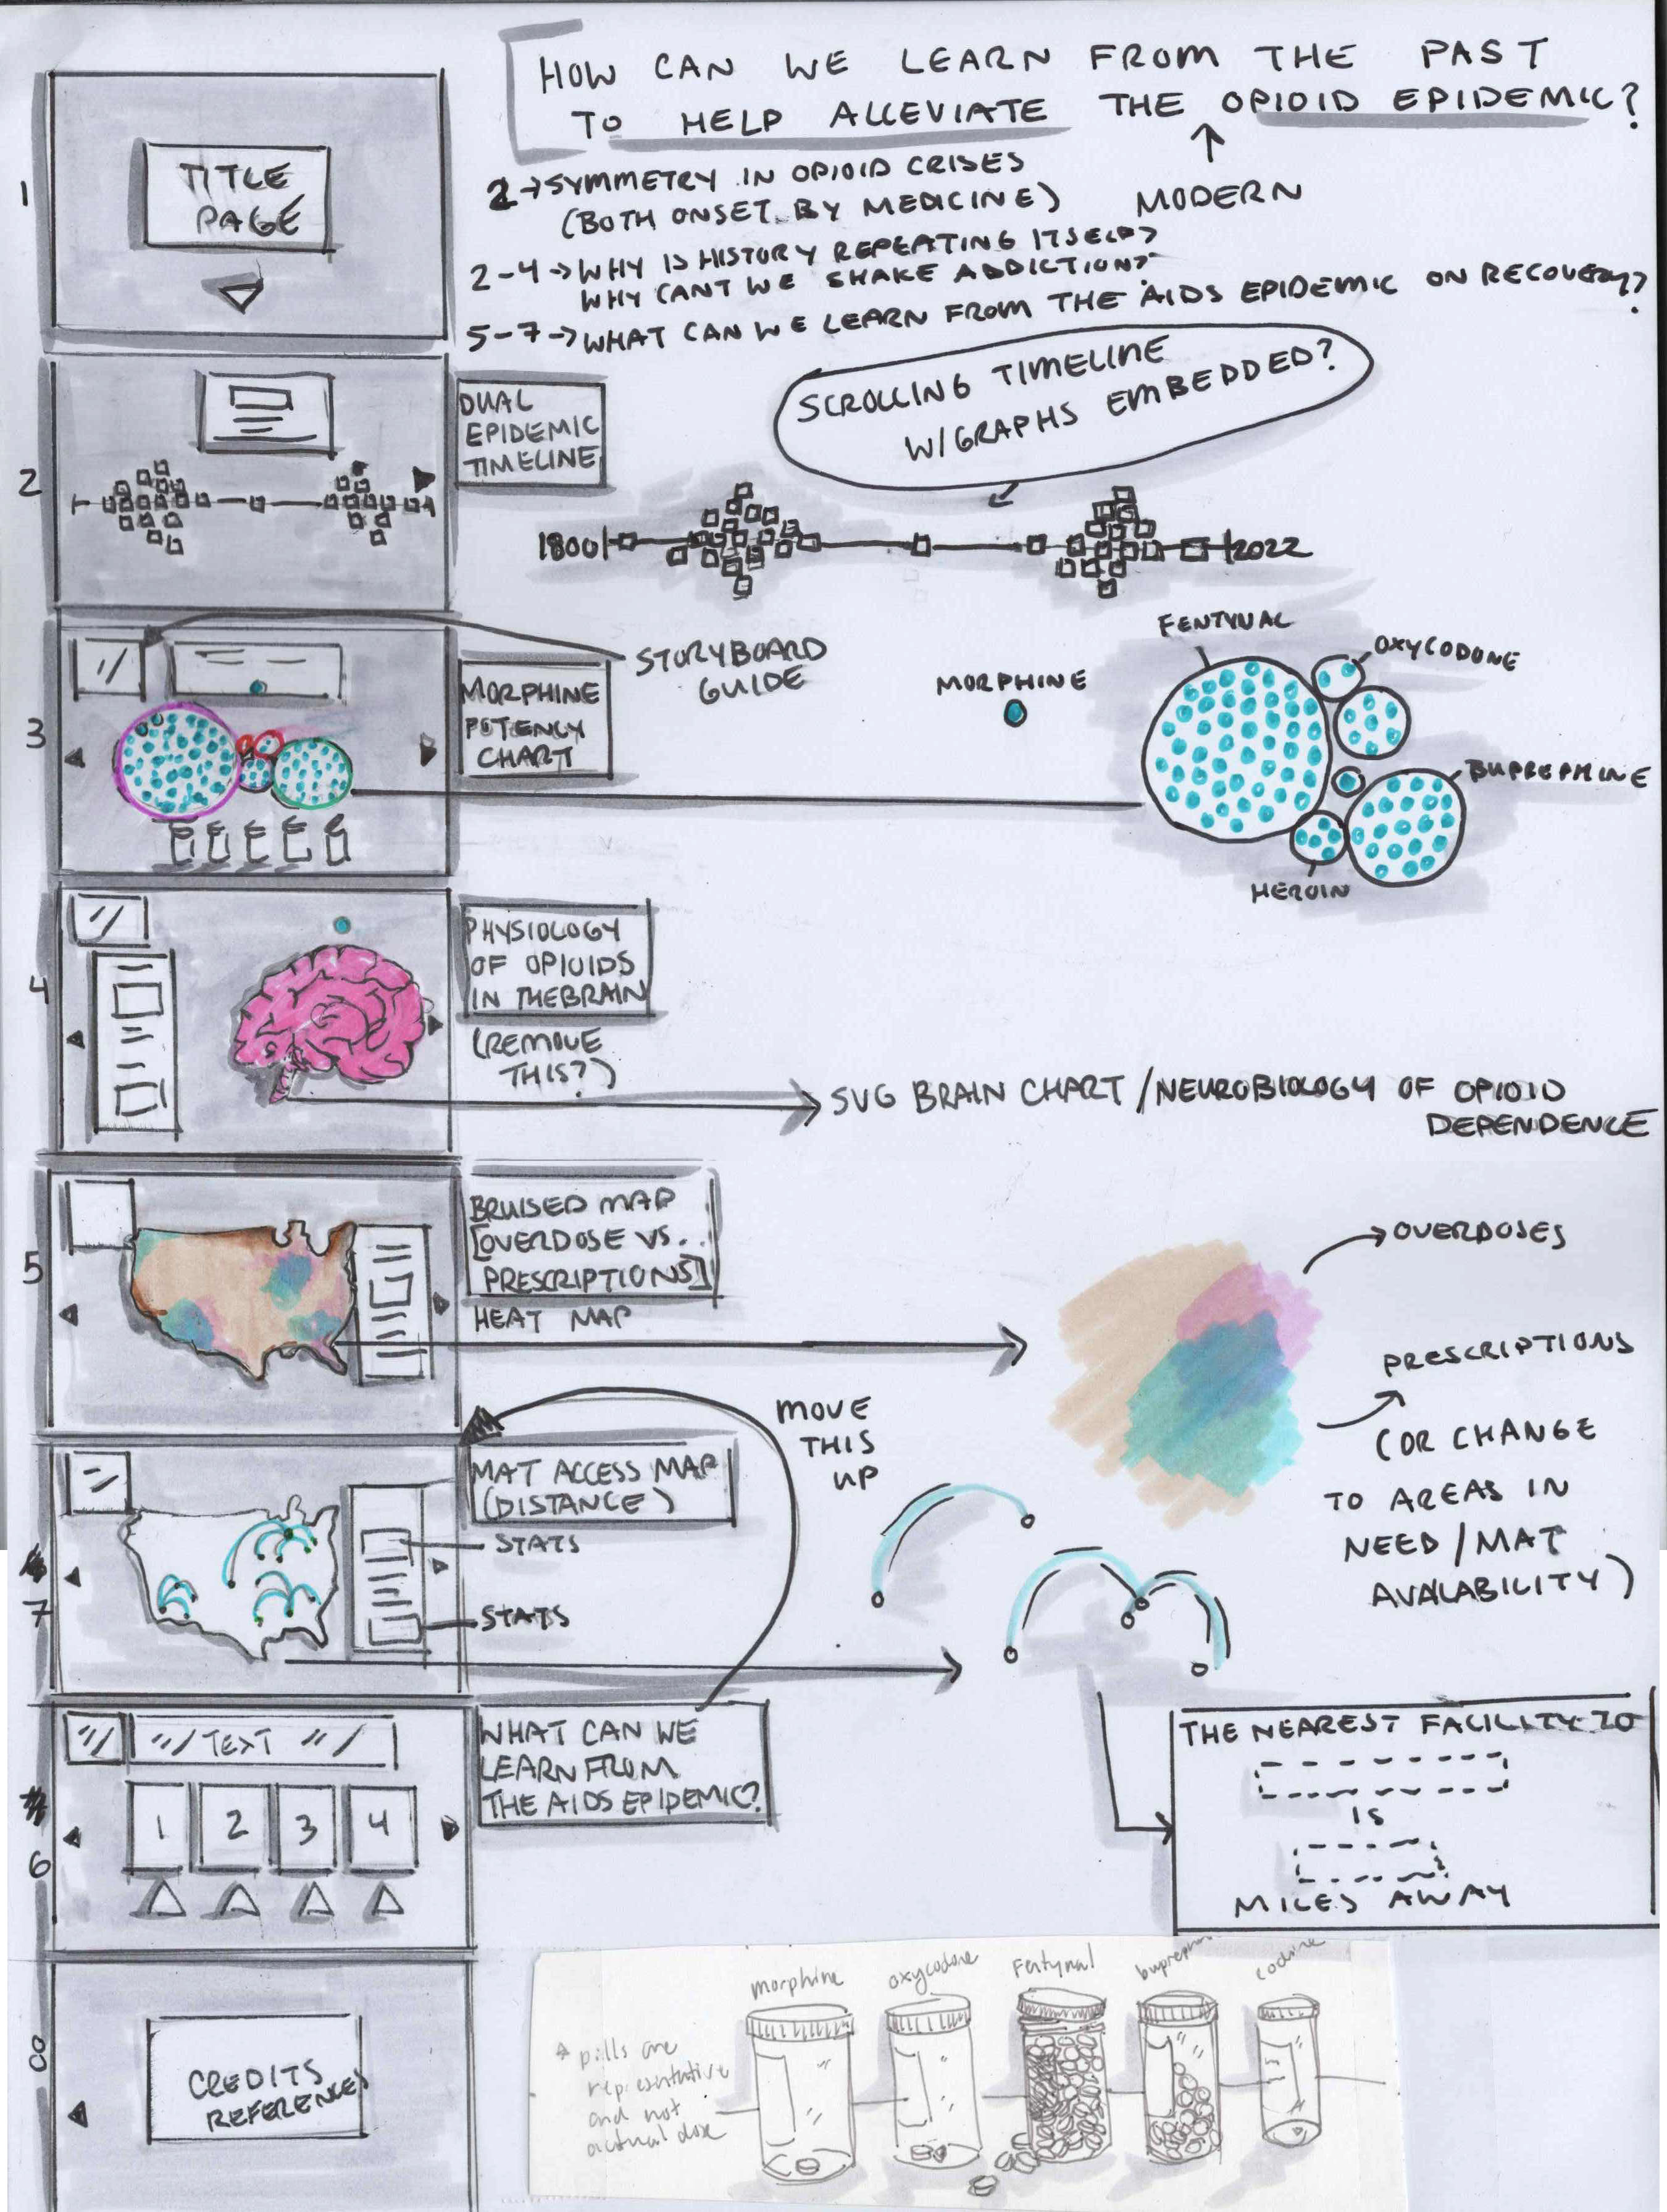 HOW CAN WE LEARN FROM THE PAST
TO HELP ALLEVIATE THE OPIOID EPIDEMIC?
MODERN
2→SYMMETRY IN OPIOID CRISES
(BOTH ONSET BY MEDICINE)
2-4→WHY IS HISTORY REPEATING ITSELF?
WHY CANT WE SHAKE ADDICTION?
5-7→WHAT CAN WE LEARN FROM THE AIDS EPIDEMIC ON RECOVERY?
1
TITLE
PAGE
2
DUAL
EPIDEMIC
TIMELINE
SCROLLING TIMELINE
W/GRAPHS EMBEDDED?
1800
2022
3
STORYBOARD
GUIDE
MORPHINE
POTENCY
CHART
MORPHINE
FENTYNAL
OXYCODONE
BUPREPHINE
HEROIN
4
PHYSIOLOGY
OF OPIOIDS
IN THE BRAIN
(REMOVE
THIS?)
SVG BRAIN CHART/NEUROBIOLOGY OF OPIOID
DEPENDENCE
5
BRUISED MAP
[OVERDOSE VS.
PRESCRIPTIONS]
HEAT MAP
OVERDOSES
PRESCRIPTIONS
(OR CHANGE
TO AREAS IN
NEED/MAT
AVALABILITY)
MOVE
THIS
UP
7
MAT ACCESS MAP
(DISTANCE)
STATS
STATS
THE NEAREST FACILITY TO
IS
MILES AWAY
6
TEXT
1 2 3 4
WHAT CAN WE
LEARN FROM
THE AIDS EPIDEMIC?
8
CREDITS
REFERENCES
morphine
oxycodone
Fentynal
codine
* pills are
representative
and not
actual dose